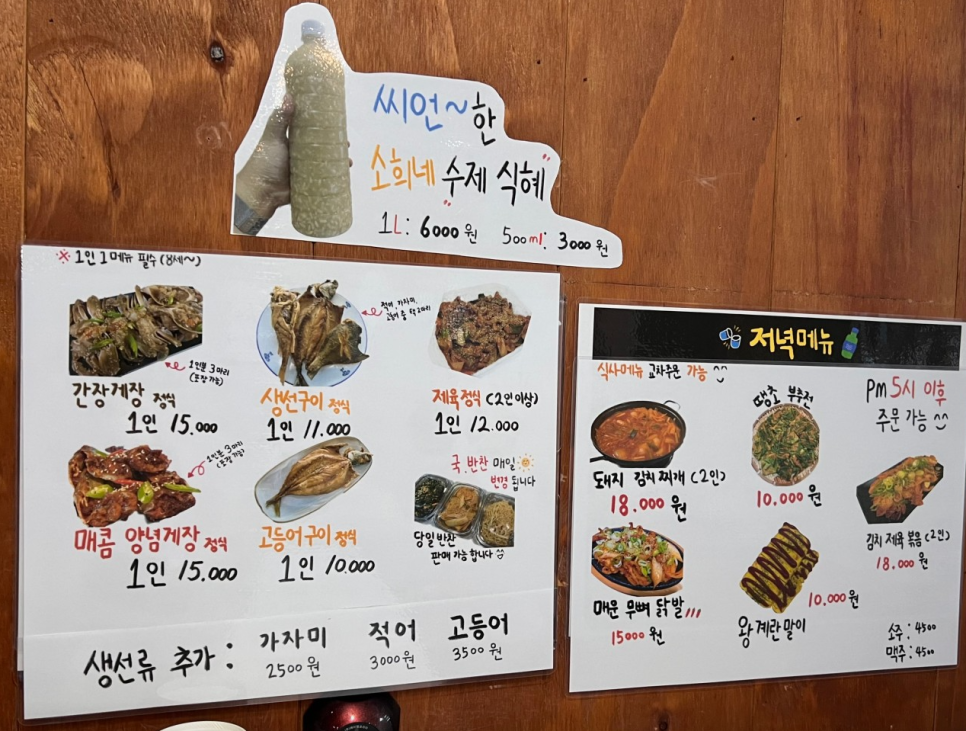 씨언~한
소희네 "수제 식혜"
1L: 6000원 500ml: 3000원
※ 1인 1메뉴 필수 (8세~)
1인분 3마리
(포장 가능)
적어, 가자미,
고등어 중 택 2마리
간장게장 정식
1인 15.000
생선구이 정식
1인 11.000
제육정식 (2인이상)
1인 12.000
1인분 3마리
(포장 가능)
매콤 양념게장 정식
1인 15.000
고등어구이 정식
1인 10.000
국, 반찬 매일
변경 됩니다
당일반찬
판매 가능합니다
생선류 추가 :
가자미
2500원
적어
3000원
고등어
3500원
저녁메뉴
식사메뉴 교차주문 가능
Pm 5시 이후
주문 가능
돼지 김치찌개 (2인)
18.000원
땡초 부추전
10.000원
김치 제육 볶음 (2인)
18.000원
매운 무뼈 닭발
15000원
왕 계란말이
10.000원
소주 : 4500
맥주 : 4500